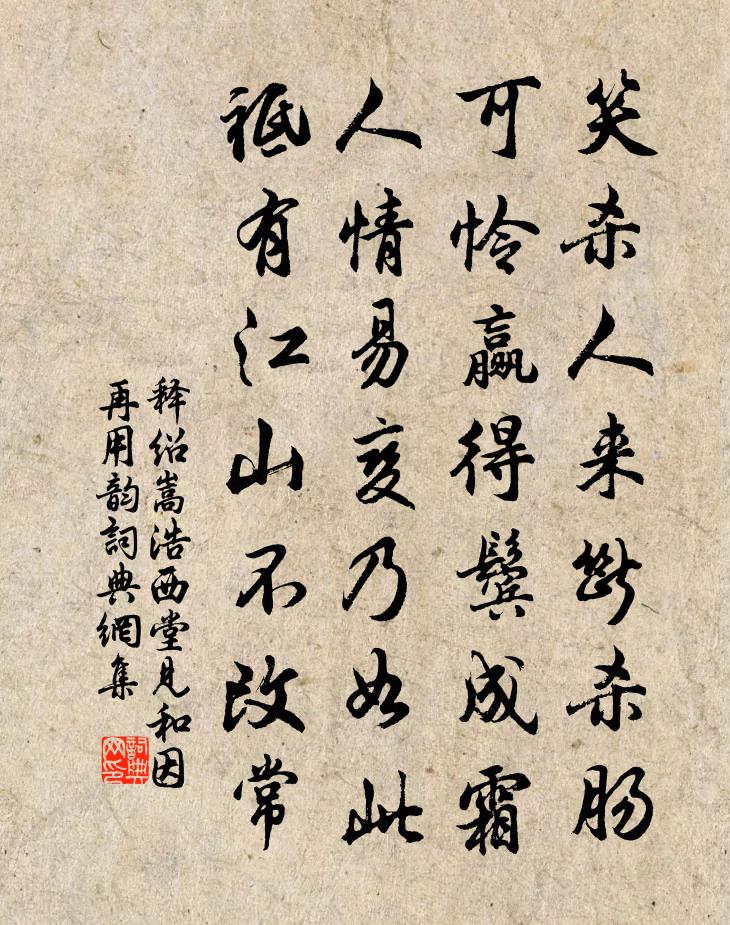 笑杀人来断杀肠
可怜赢得鬓成霜
人情易变乃如此
祗有江山不改常
释绍嵩浩西堂见和因
再用韵词典網集
詞典
网印